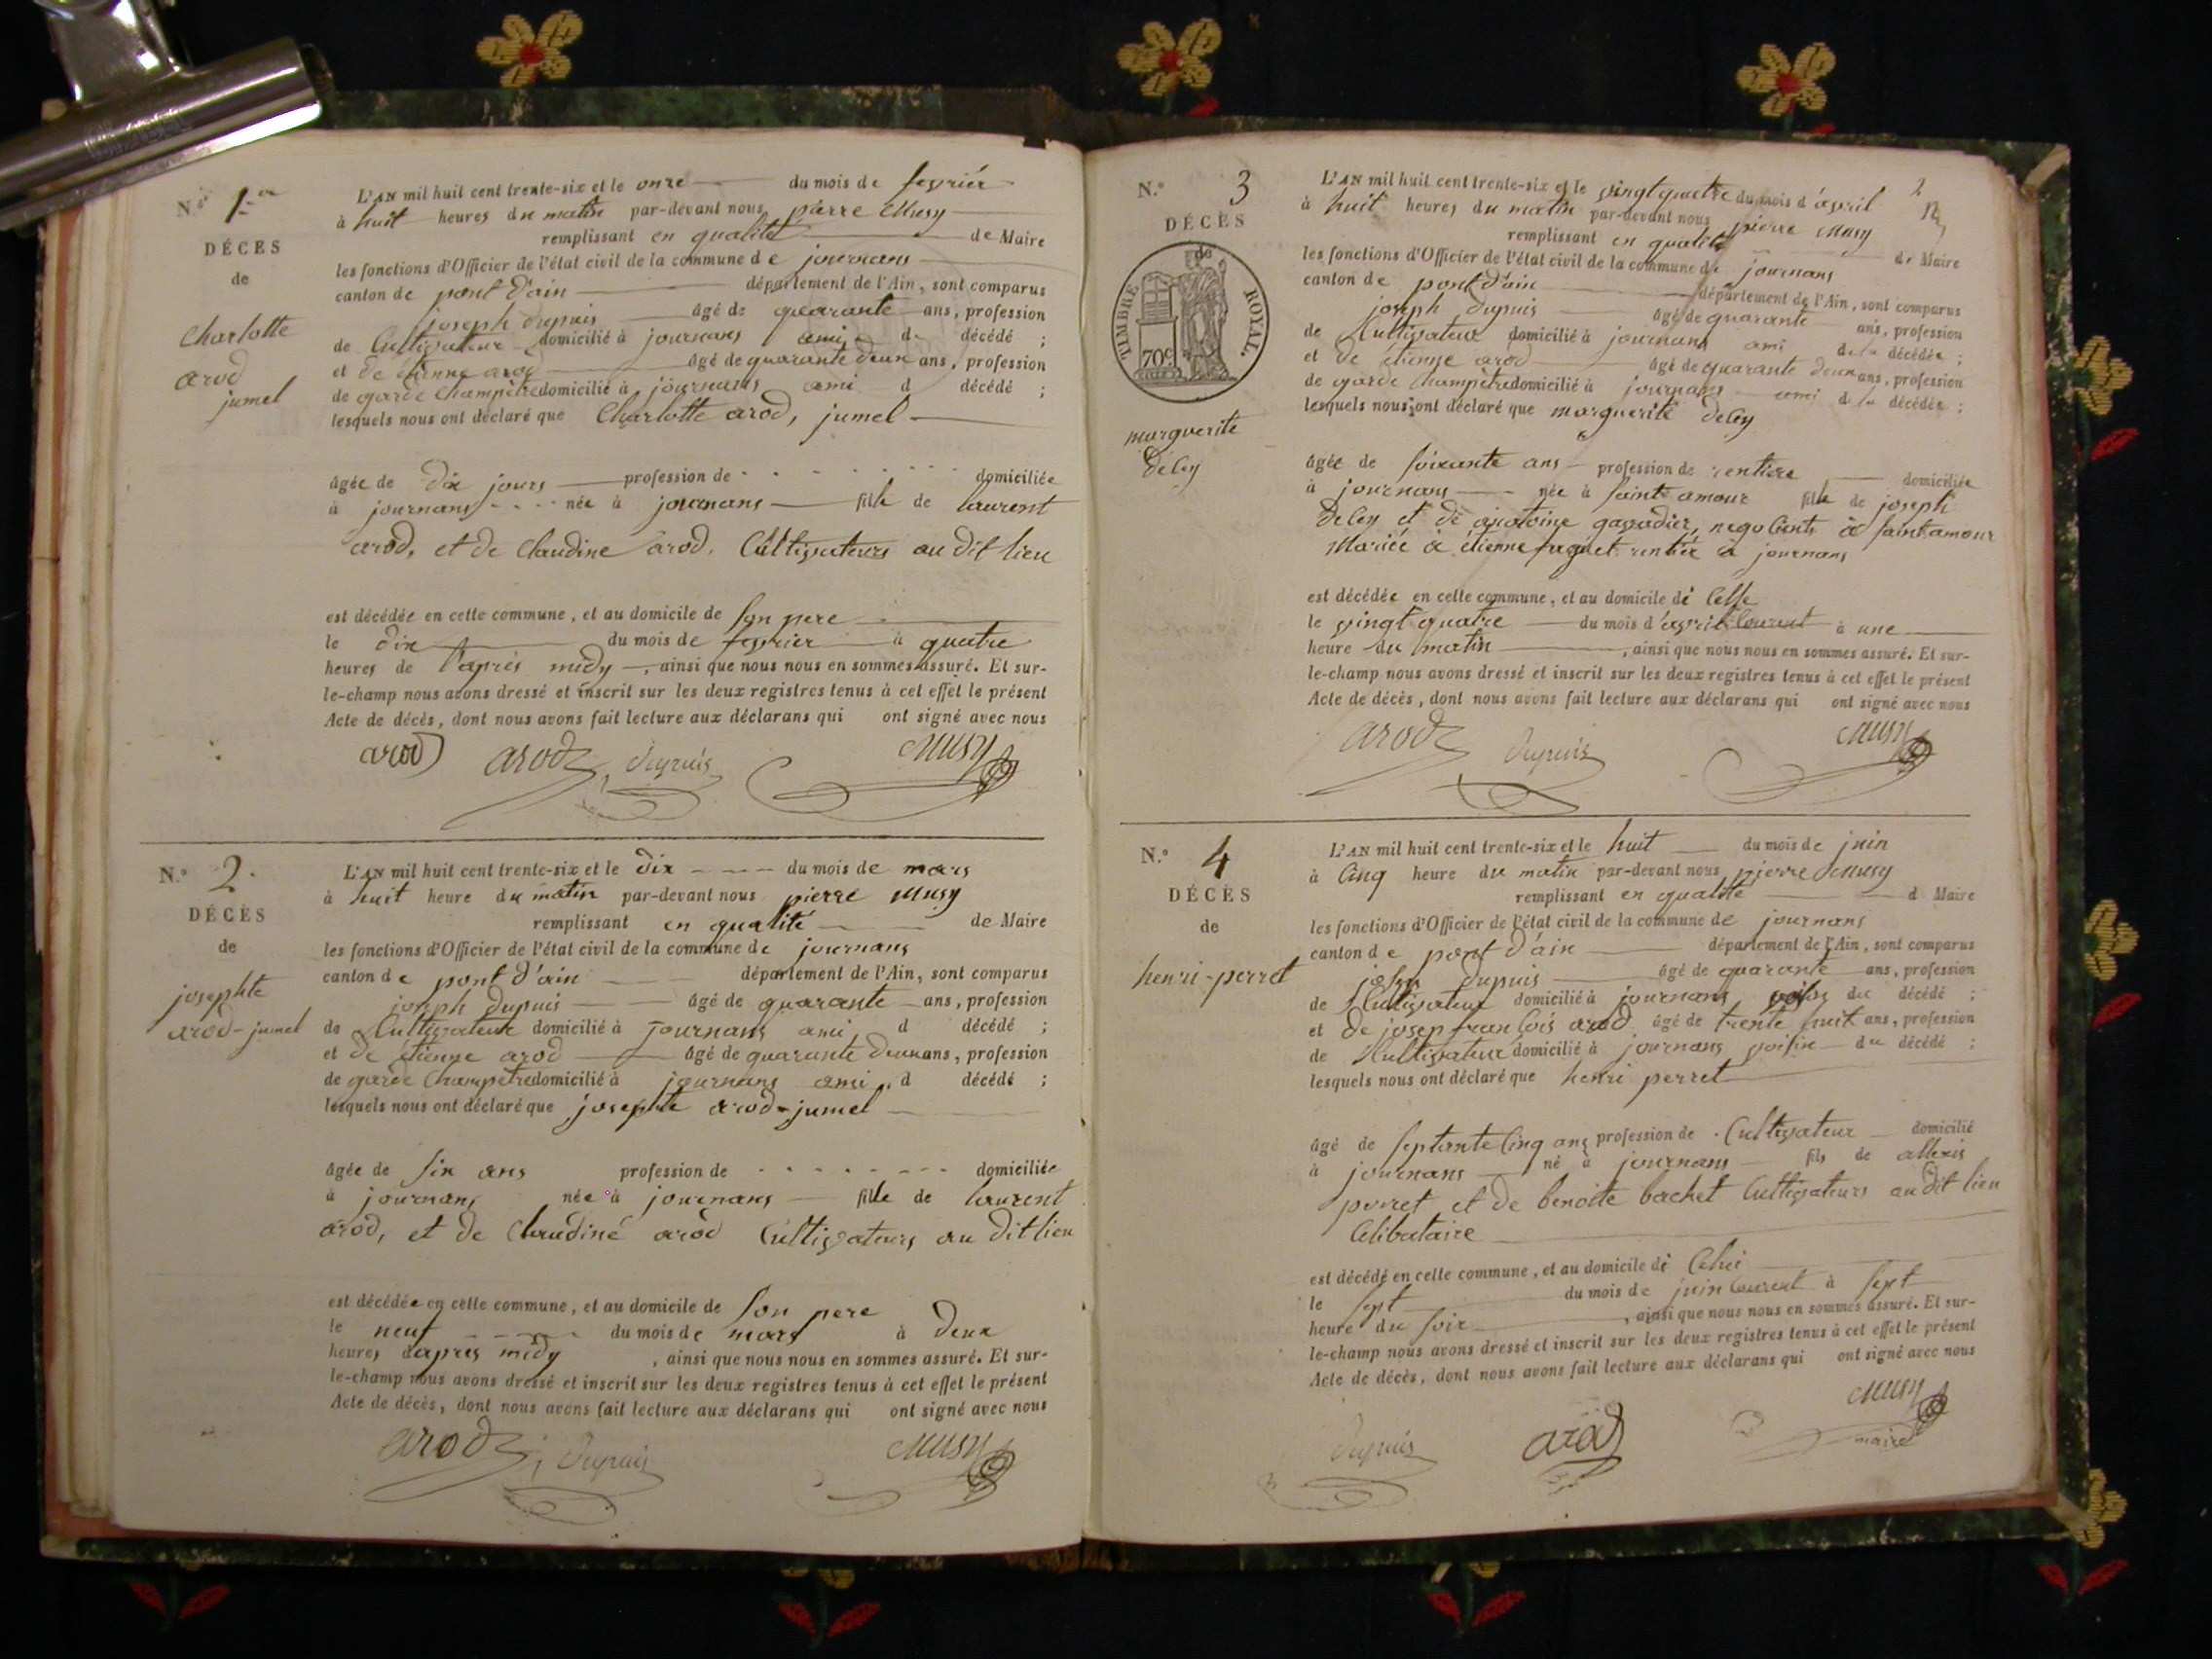 N.o 1er
DÉCÈS
de
Charlotte
arod
jumel
L'AN mil huit cent trente-six et le onze du mois de fevriér
à huit heures du matin par-devant nous pierre Musy
remplissant en qualité de Maire
les fonctions d'Officier de l'état civil de la commune de journans
canton de pont d'ain département de l'Ain, sont comparus
joseph dupuis âgé de quarante ans, profession
de Cultivateur domicilié à journans ami d décédé ;
et de étienne arod âgé de quarante deux ans, profession
de garde Champètre domicilié à journans ami d décédé ;
lesquels nous ont déclaré que Charlotte arod, jumel
âgée de dix jours profession de domiciliée
à journans née à journans fille de laurent
arod, et de Claudine arod, Cultivateurs au dit lieu
est décédée en cette commune, et au domicile de son pere
le dix du mois de fevrier à quatre
heures de l'après midy, ainsi que nous nous en sommes assuré. Et sur-
le-champ nous avons dressé et inscrit sur les deux registres tenus à cet effet le présent
Acte de décès, dont nous avons fait lecture aux déclarans qui ont signé avec nous
arod arod dupuis Musy
N.o 2.
DÉCÈS
de
josephte
arod-jumel
L'AN mil huit cent trente-six et le dix du mois de mars
à huit heure du matin par-devant nous pierre Musy
remplissant en qualité de Maire
les fonctions d'Officier de l'état civil de la commune de journans
canton de pont d'ain département de l'Ain, sont comparus
joseph Dupuis âgé de quarante ans, profession
de Cultivateur domicilié à journans ami d décédé ;
et de étienne arod âgé de quarante deux ans, profession
de garde Champetre domicilié à journans ami d décédé ;
lesquels nous ont déclaré que josephte arod-jumel
âgée de six ans profession de domiciliée
à journans née à journans fille de laurent
arod, et de Claudine arod Cultivateurs au dit lieu
est décédée en cette commune, et au domicile de son pere
le neuf du mois de mars à deux
heures d'après midy, ainsi que nous nous en sommes assuré. Et sur-
le-champ nous avons dressé et inscrit sur les deux registres tenus à cet effet le présent
Acte de décès, dont nous avons fait lecture aux déclarans qui ont signé avec nous
arod Dupuis Musy
2
N.o 3
DÉCÈS
de
TIMBRE ROYAL.
70c
marguerite
deley
L'AN mil huit cent trente-six et le vingt quatre du mois d'avril
à huit heures du matin par-devant nous pierre Musy
remplissant en qualité de Maire
les fonctions d'Officier de l'état civil de la commune de journans
canton de pont d'ain département de l'Ain, sont comparus
joseph dupuis âgé de quarante ans, profession
de Cultivateur domicilié à journans ami de la décédée ;
et de étienne arod âgé de quarante deux ans, profession
de garde Champètre domicilié à journans ami de la décédée ;
lesquels nous ont déclaré que marguerite deley
âgée de soixante ans profession de rentiere domiciliée
à journans née à saint amour fille de joseph
deley et de antoine gavadier, negociants à saint amour
Mariée à étienne faguet rentier à journans
est décédée en cette commune, et au domicile de Celle
le vingt quatre du mois d'avril Courant à une
heure du matin, ainsi que nous nous en sommes assuré. Et sur-
le-champ nous avons dressé et inscrit sur les deux registres tenus à cet effet le présent
Acte de décès, dont nous avons fait lecture aux déclarans qui ont signé avec nous
arod dupuis Musy
N.o 4
DÉCÈS
de
henri-perret
L'AN mil huit cent trente-six et le huit du mois de juin
à Cinq heure du matin par-devant nous pierre Musy
remplissant en qualité d Maire
les fonctions d'Officier de l'état civil de la commune de journans
canton de pont d'ain département de l'Ain, sont comparus
dupuis âgé de quarante ans, profession
de Cultivateur domicilié à journans du décédé ;
et de josep francois arod âgé de trente huit ans, profession
de Cultivateur domicilié à journans voisin du décédé ;
lesquels nous ont déclaré que henri perret
âgé de septante Cinq ans profession de Cultivateur domicilié
à journans né à journans fils de allexis
perret et de benoite bachet Cultivateurs au dit lieu
Celibataire
est décédé en cette commune, et au domicile de Celui
le sept du mois de juin Courant à sept
heure du soir, ainsi que nous nous en sommes assuré. Et sur-
le-champ nous avons dressé et inscrit sur les deux registres tenus à cet effet le présent
Acte de décès, dont nous avons fait lecture aux déclarans qui ont signé avec nous
dupuis arod Musy
maire